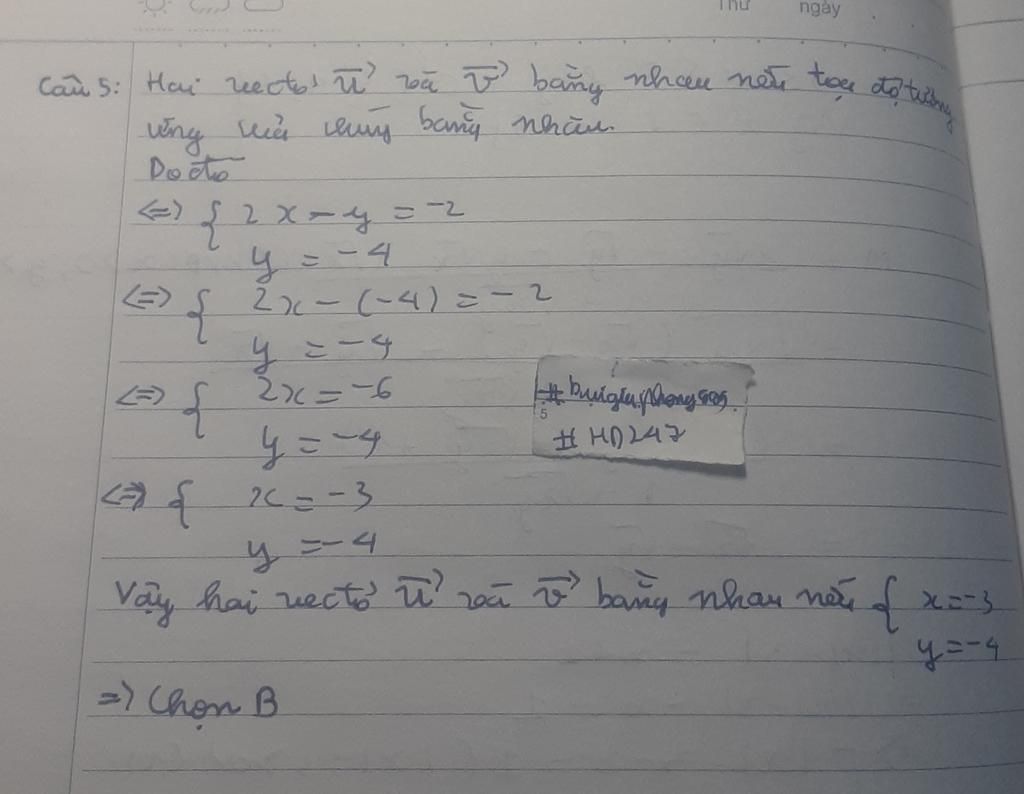 Thứ ngày
Câu 5: Hai vectơ u⃗ và v⃗ bằng nhau nếu tọa độ tương
ứng của chúng bằng nhau.
Do đó
<=> { 2x - y = -2
y = -4
<=> { 2x - (-4) = -2
y = -4
<=> { 2x = -6
y = -4
<=> { x = -3
y = -4
# buigia.phong505
5
# HD247
Vậy hai vectơ u⃗ và v⃗ bằng nhau nếu { x = -3
y = -4
=> Chọn B